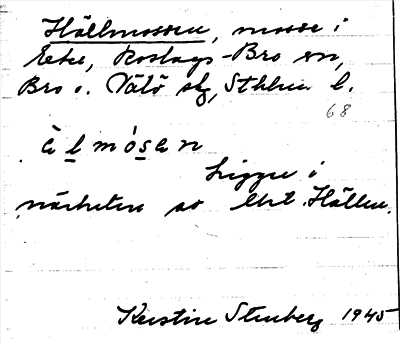 Hällmossen, mosse i
Eske, Roslags-Bro sn,
Bro o. Vätö skg, Sthlms l.
68
ä l m ó s a n
Ligger i
närheten av Uht. Hällen.
Kerstin Stenberg 1945